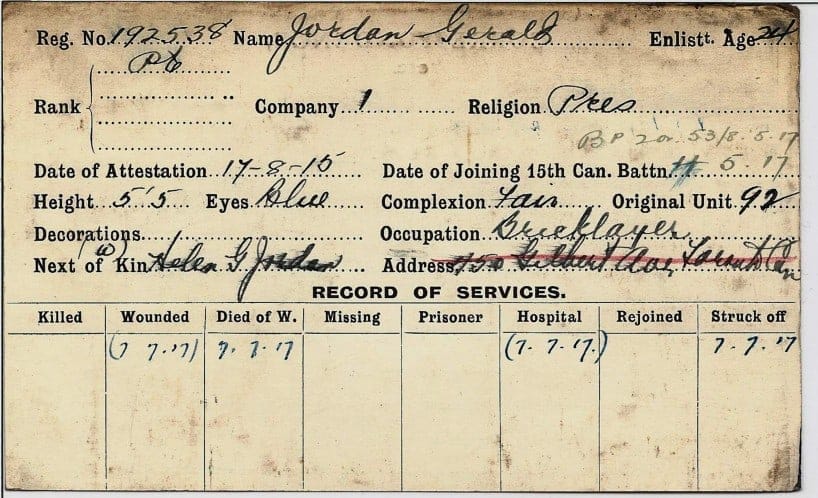 Reg. No. 192538 Name Jordan Gerald Enlistt. Age 24
Pte
Rank Company 1 Religion Pres
BP 2 or 53/8.5.17
Date of Attestation 17-8-15 Date of Joining 15th Can. Battn. 5.17
Height 5'5 Eyes Blue Complexion Fair Original Unit 92
Decorations Occupation Bricklayer
(W)
Next of Kin Helen G Jordan Address 750 Gilbert Ave, Toronto Can
RECORD OF SERVICES.
Killed Wounded Died of W. Missing Prisoner Hospital Rejoined Struck off
(7 7.17) 7.7.17 (7.7.17.) 7.7.17